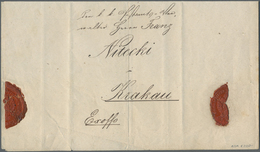 Den k. k.
walter Herrn Franz
Nitecki
in
Krakau
Exoffo